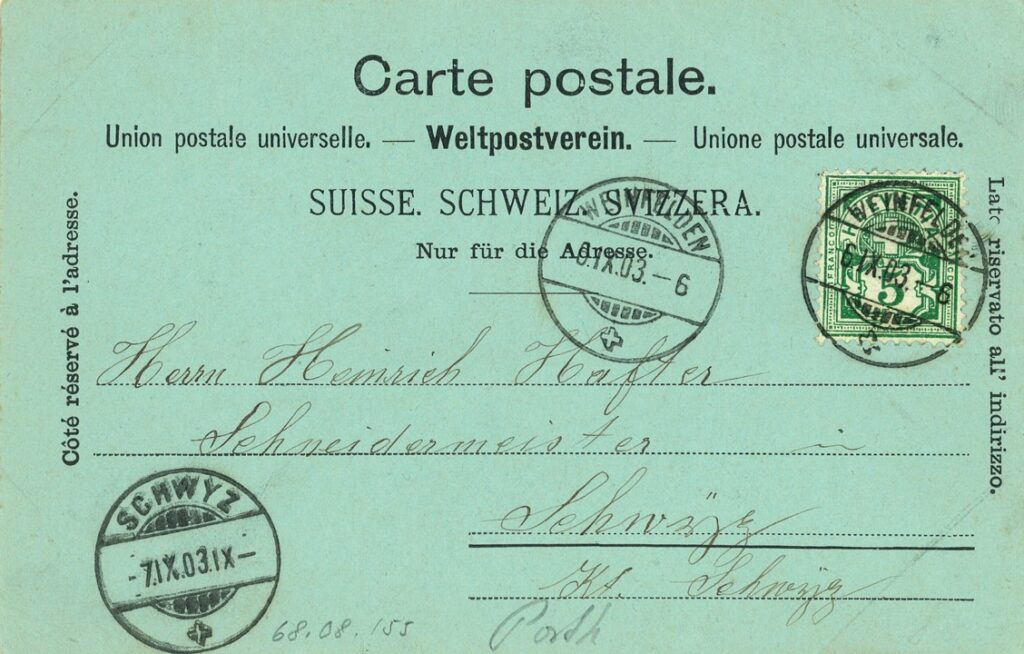 Carte postale.
Union postale universelle. — Weltpostverein. — Unione postale universale.
SUISSE. SCHWEIZ. SVIZZERA.
Nur für die Adresse.
Côté réservé à l'adresse.
Lato riservato all' indirizzo.
WEINFELDEN
6.IX.03.–6
WEINFELDEN
6.IX.03.–6
FRANCO
5
Herrn Heinrich Hafter
Schneidermeister in
Schwÿz
Kt. Schwÿz
SCHWYZ
-7.IX.03.IX-
68.08.155